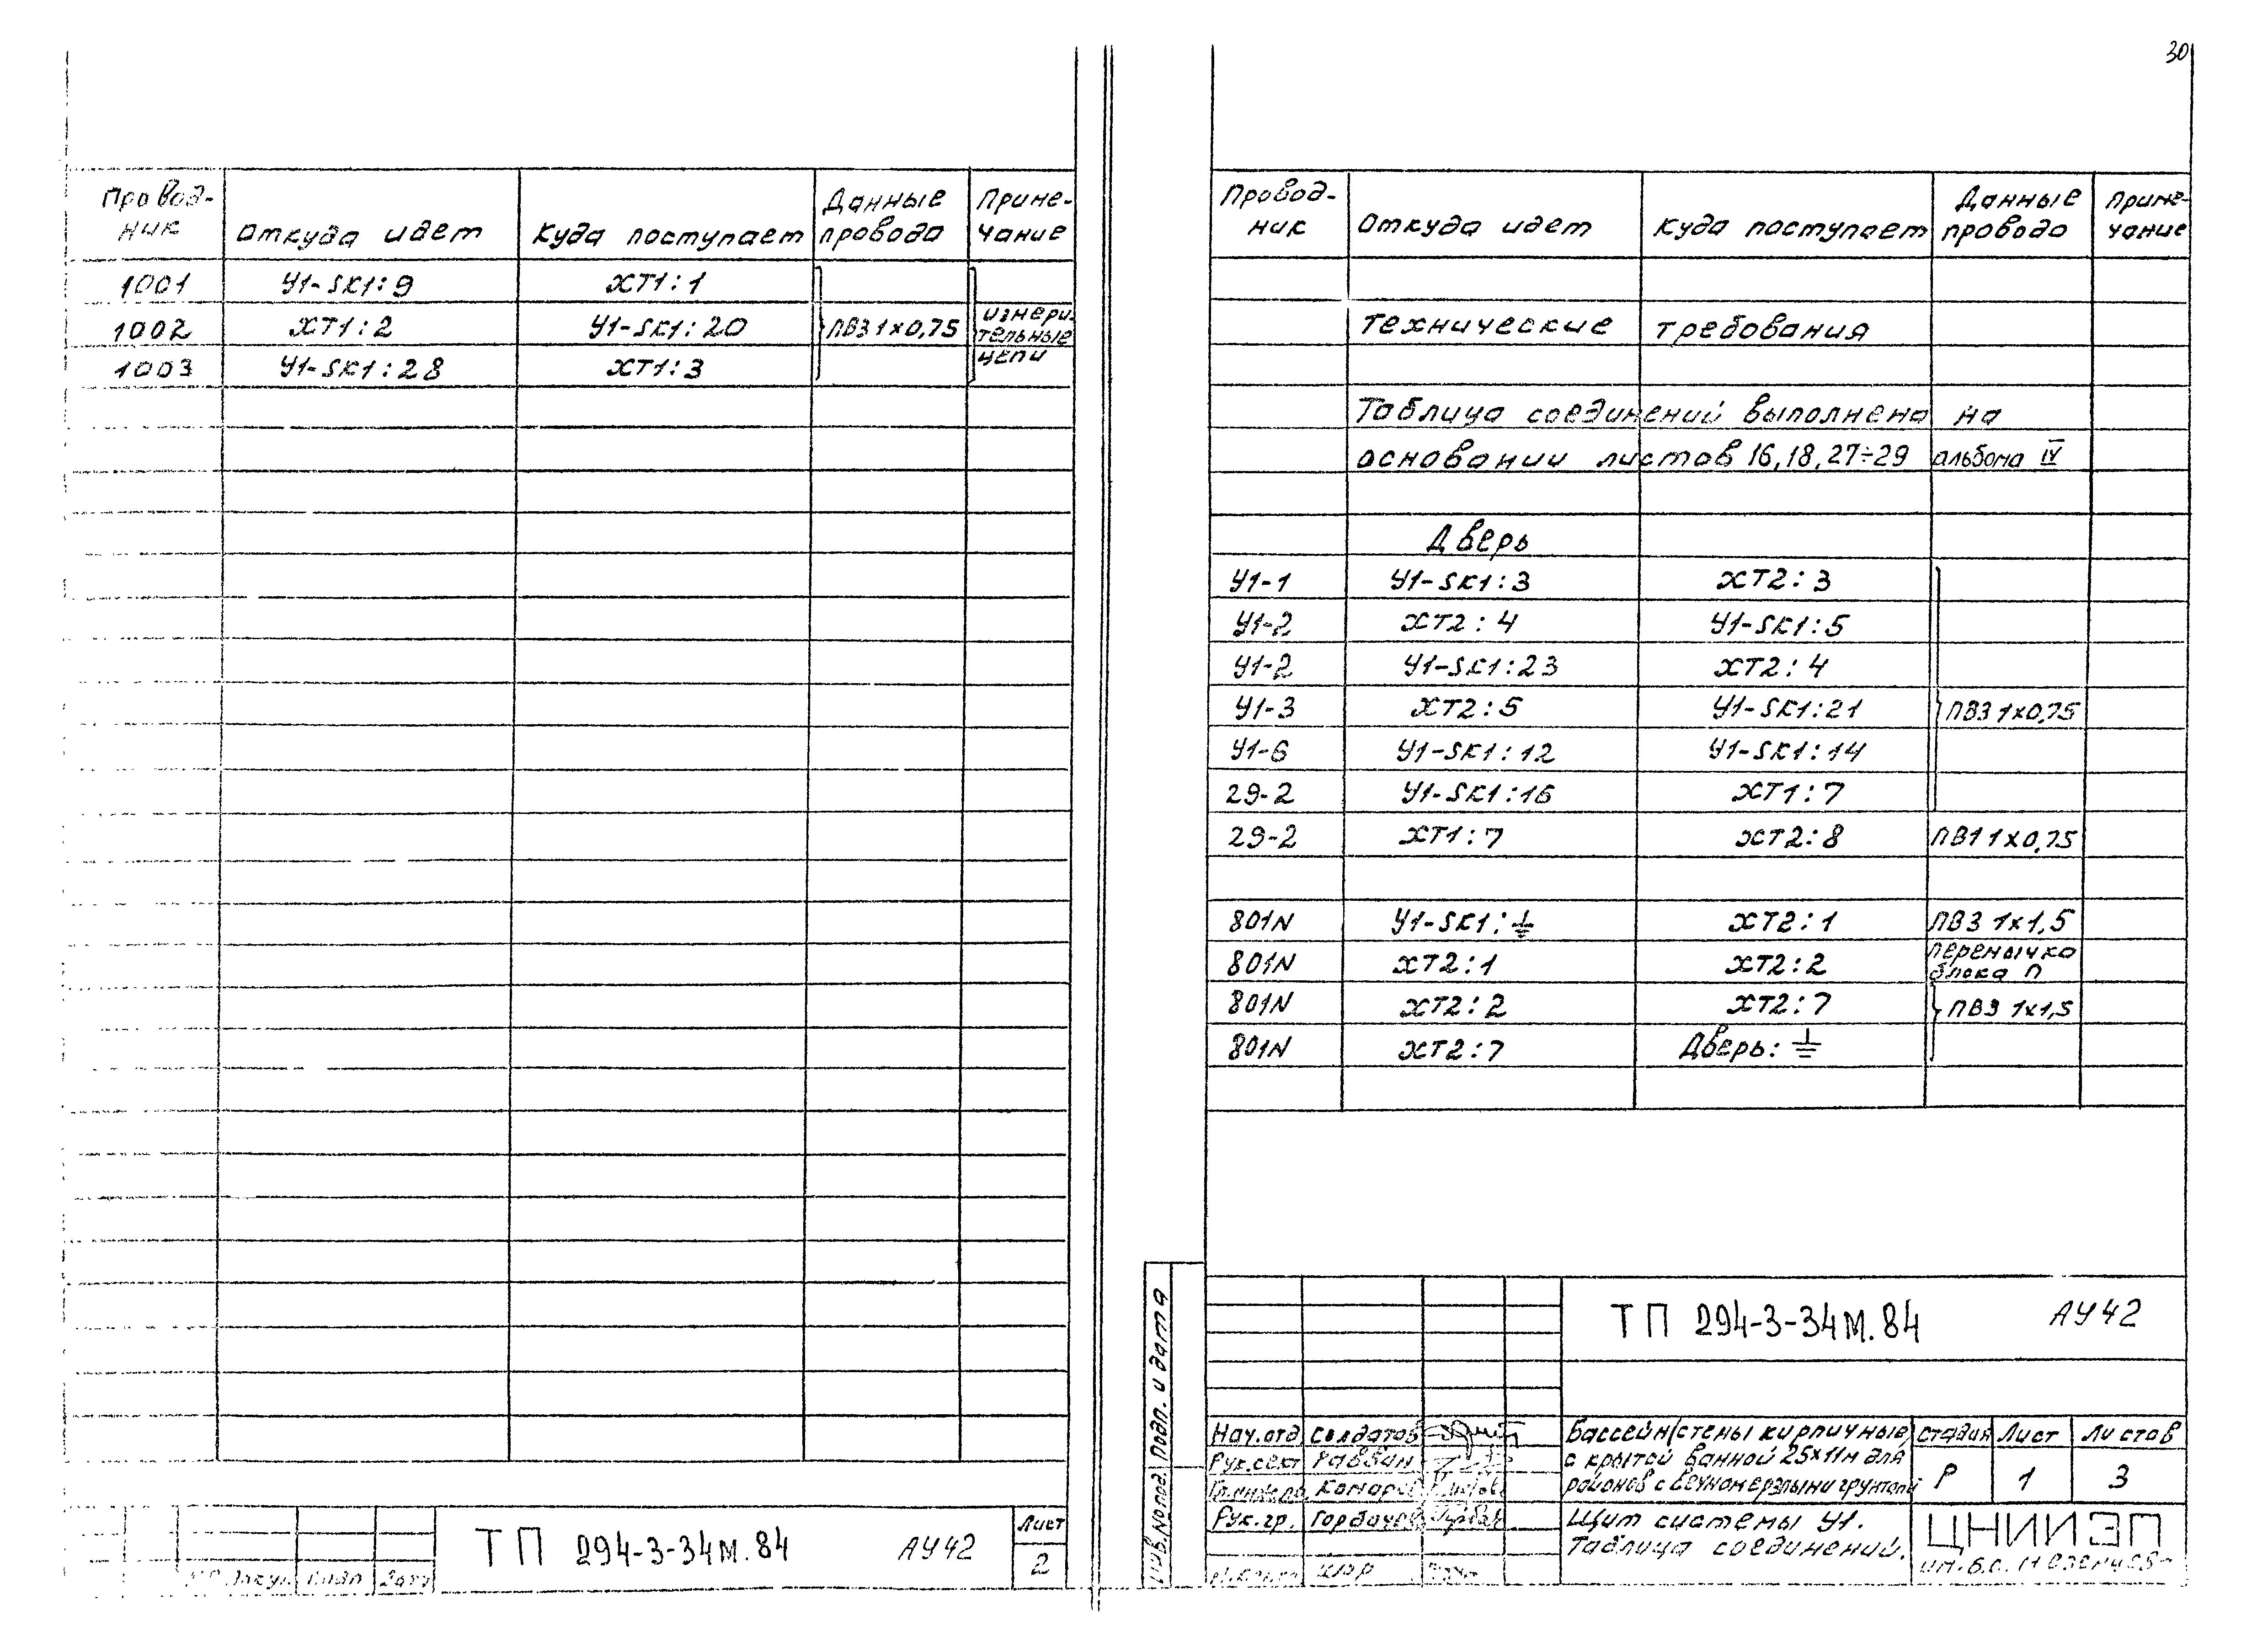 30
Провод- Данные Приме-
ник Откуда идет Куда поступает провода чание
1001 У1-SK1:9 ХТ1:1
1002 ХТ1:2 У1-SK1:20 ПВ3 1×0,75 измери-
тельные
1003 У1-SK1:28 ХТ1:3 цепи
ТП 294-3-34М.84 АУ42
Лист
2
Провод- Данные Приме-
ник Откуда идет Куда поступает провода чание
Технические требования
Таблица соединений выполнена на
основании листов 16,18,27÷29 альбома IV
Дверь
У1-1 У1-SK1:3 ХТ2:3
У1-2 ХТ2:4 У1-SK1:5
У1-2 У1-SK1:23 ХТ2:4
У1-3 ХТ2:5 У1-SK1:21 ПВ3 1×0,75
У1-6 У1-SK1:12 У1-SK1:14
29-2 У1-SK1:16 ХТ1:7
29-2 ХТ1:7 ХТ2:8 ПВ1 1×0,75
801N У1-SK1:⏚ ХТ2:1 ПВ3 1×1,5
801N ХТ2:1 ХТ2:2 перемычка
блока П
801N ХТ2:2 ХТ2:7 ПВ3 1×1,5
801N ХТ2:7 Дверь:⏚
Инв.№ подл. Подп. и дата
ТП 294-3-34М.84 АУ42
Нач.отд Солдатов
Рук.сект Раввин
Рук.гр.
Бассейн (стены кирпичные)
с крытой ванной 25×11м для
районов с вечномерзлыми грунтами
Стадия Лист Листов
Р 1 3
Щит системы У1.
Таблица соединений.
ЦНИИЭП